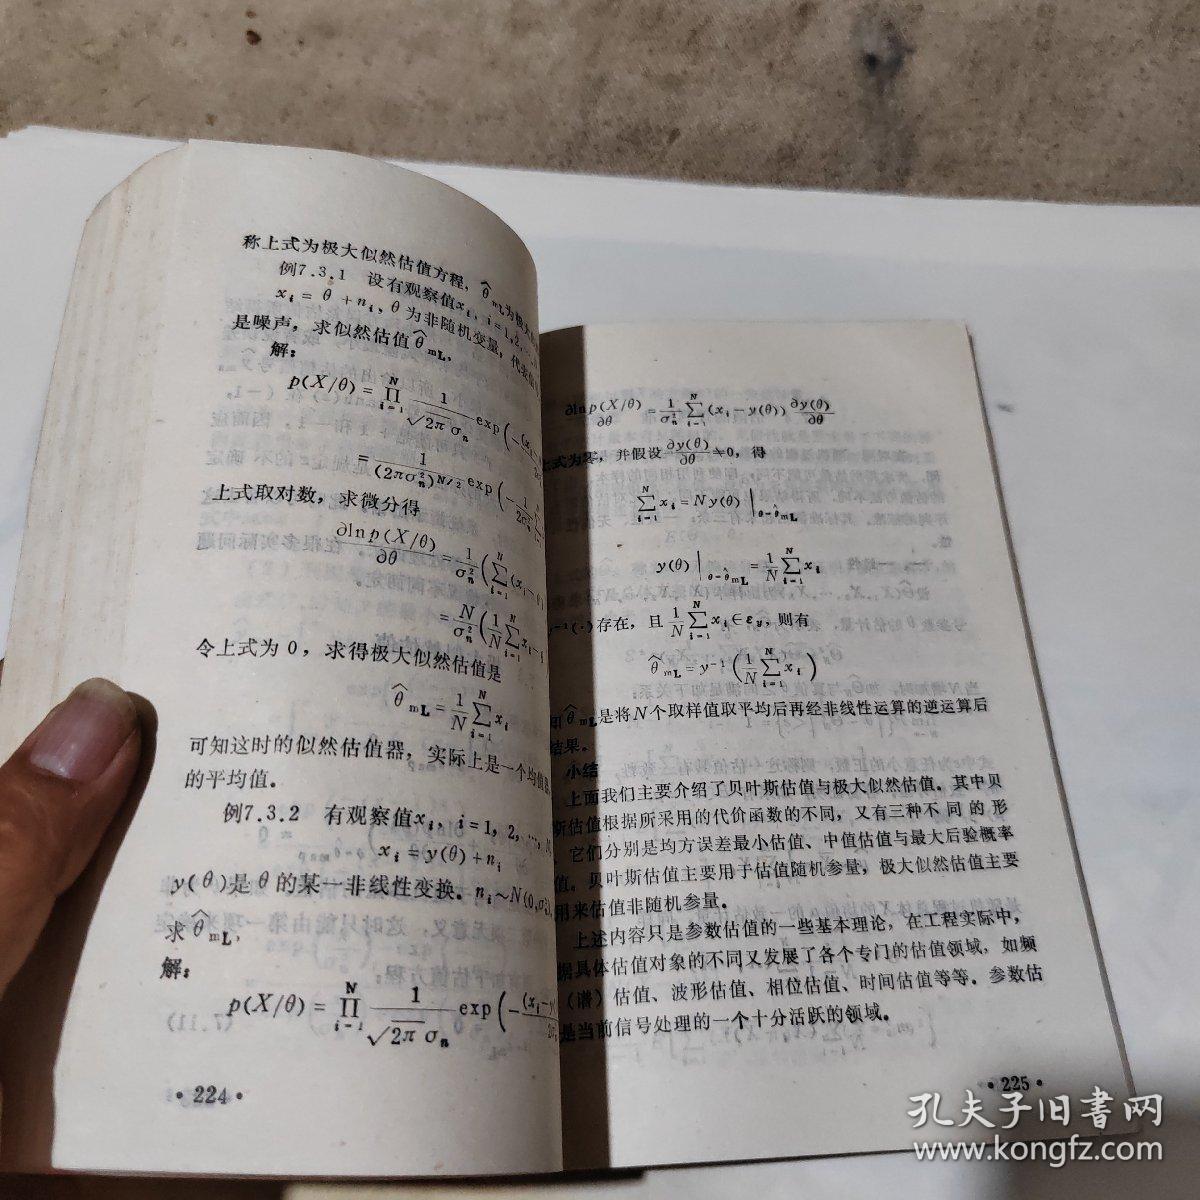 称上式为极大似然估值方程，θ̂mL为极大
例7.3.1 设有观察值xi，i=1,2,…,
xi = θ + ni，θ为非随机变量，代表信
是噪声，求似然估值θ̂mL，
解：
p(X/θ) = ∏(i=1..N) 1/(√2π σn) exp(-(xi-
= 1/(2πσn²)^(N/2) exp(-1/2σn² ∑
上式取对数，求微分得
∂lnp(X/θ)/∂θ = 1/σn² (∑(i=1..N) (xi-θ)
= N/σn² (1/N ∑(i=1..N) xi-
令上式为0，求得极大似然估值是
θ̂mL = 1/N ∑(i=1..N) xi
可知这时的似然估值器，实际上是一个均值器
的平均值。
例7.3.2 有观察值xi，i=1，2，…，N，
xi = y(θ) + ni
y(θ)是θ的某一非线性变换。ni~N(0,σn²)
求θ̂mL，
解：
p(X/θ) = ∏(i=1..N) 1/(√2π σn) exp(-(xi-y
·224·
∂lnp(X/θ)/∂θ = 1/σn² ∑(i=1..N) (xi-y(θ)) ∂y(θ)/∂θ
上式为零，并假设 ∂y(θ)/∂θ ≠0，得
∑(i=1..N) xi = Ny(θ)|θ=θ̂mL
y(θ)|θ=θ̂mL = 1/N ∑(i=1..N) xi
y⁻¹(·)存在，且 1/N ∑(i=1..N) xi∈εy，则有
θ̂mL = y⁻¹(1/N ∑(i=1..N) xi)
知θ̂mL是将N个取样值取平均后再经非线性运算的逆运算后
结果。
小结
上面我们主要介绍了贝叶斯估值与极大似然估值。其中贝
斯估值根据所采用的代价函数的不同，又有三种不同的形
它们分别是均方误差最小估值、中值估值与最大后验概率
值。贝叶斯估值主要用于估值随机参量，极大似然估值主要
用来估值非随机参量。
上述内容只是参数估值的一些基本理论，在工程实际中，
据具体估值对象的不同又发展了各个专门的估值领域，如频
（谱）估值、波形估值、相位估值、时间估值等等。参数估
是当前信号处理的一个十分活跃的领域。
·225·
孔夫子旧书网
www.kongfz.com